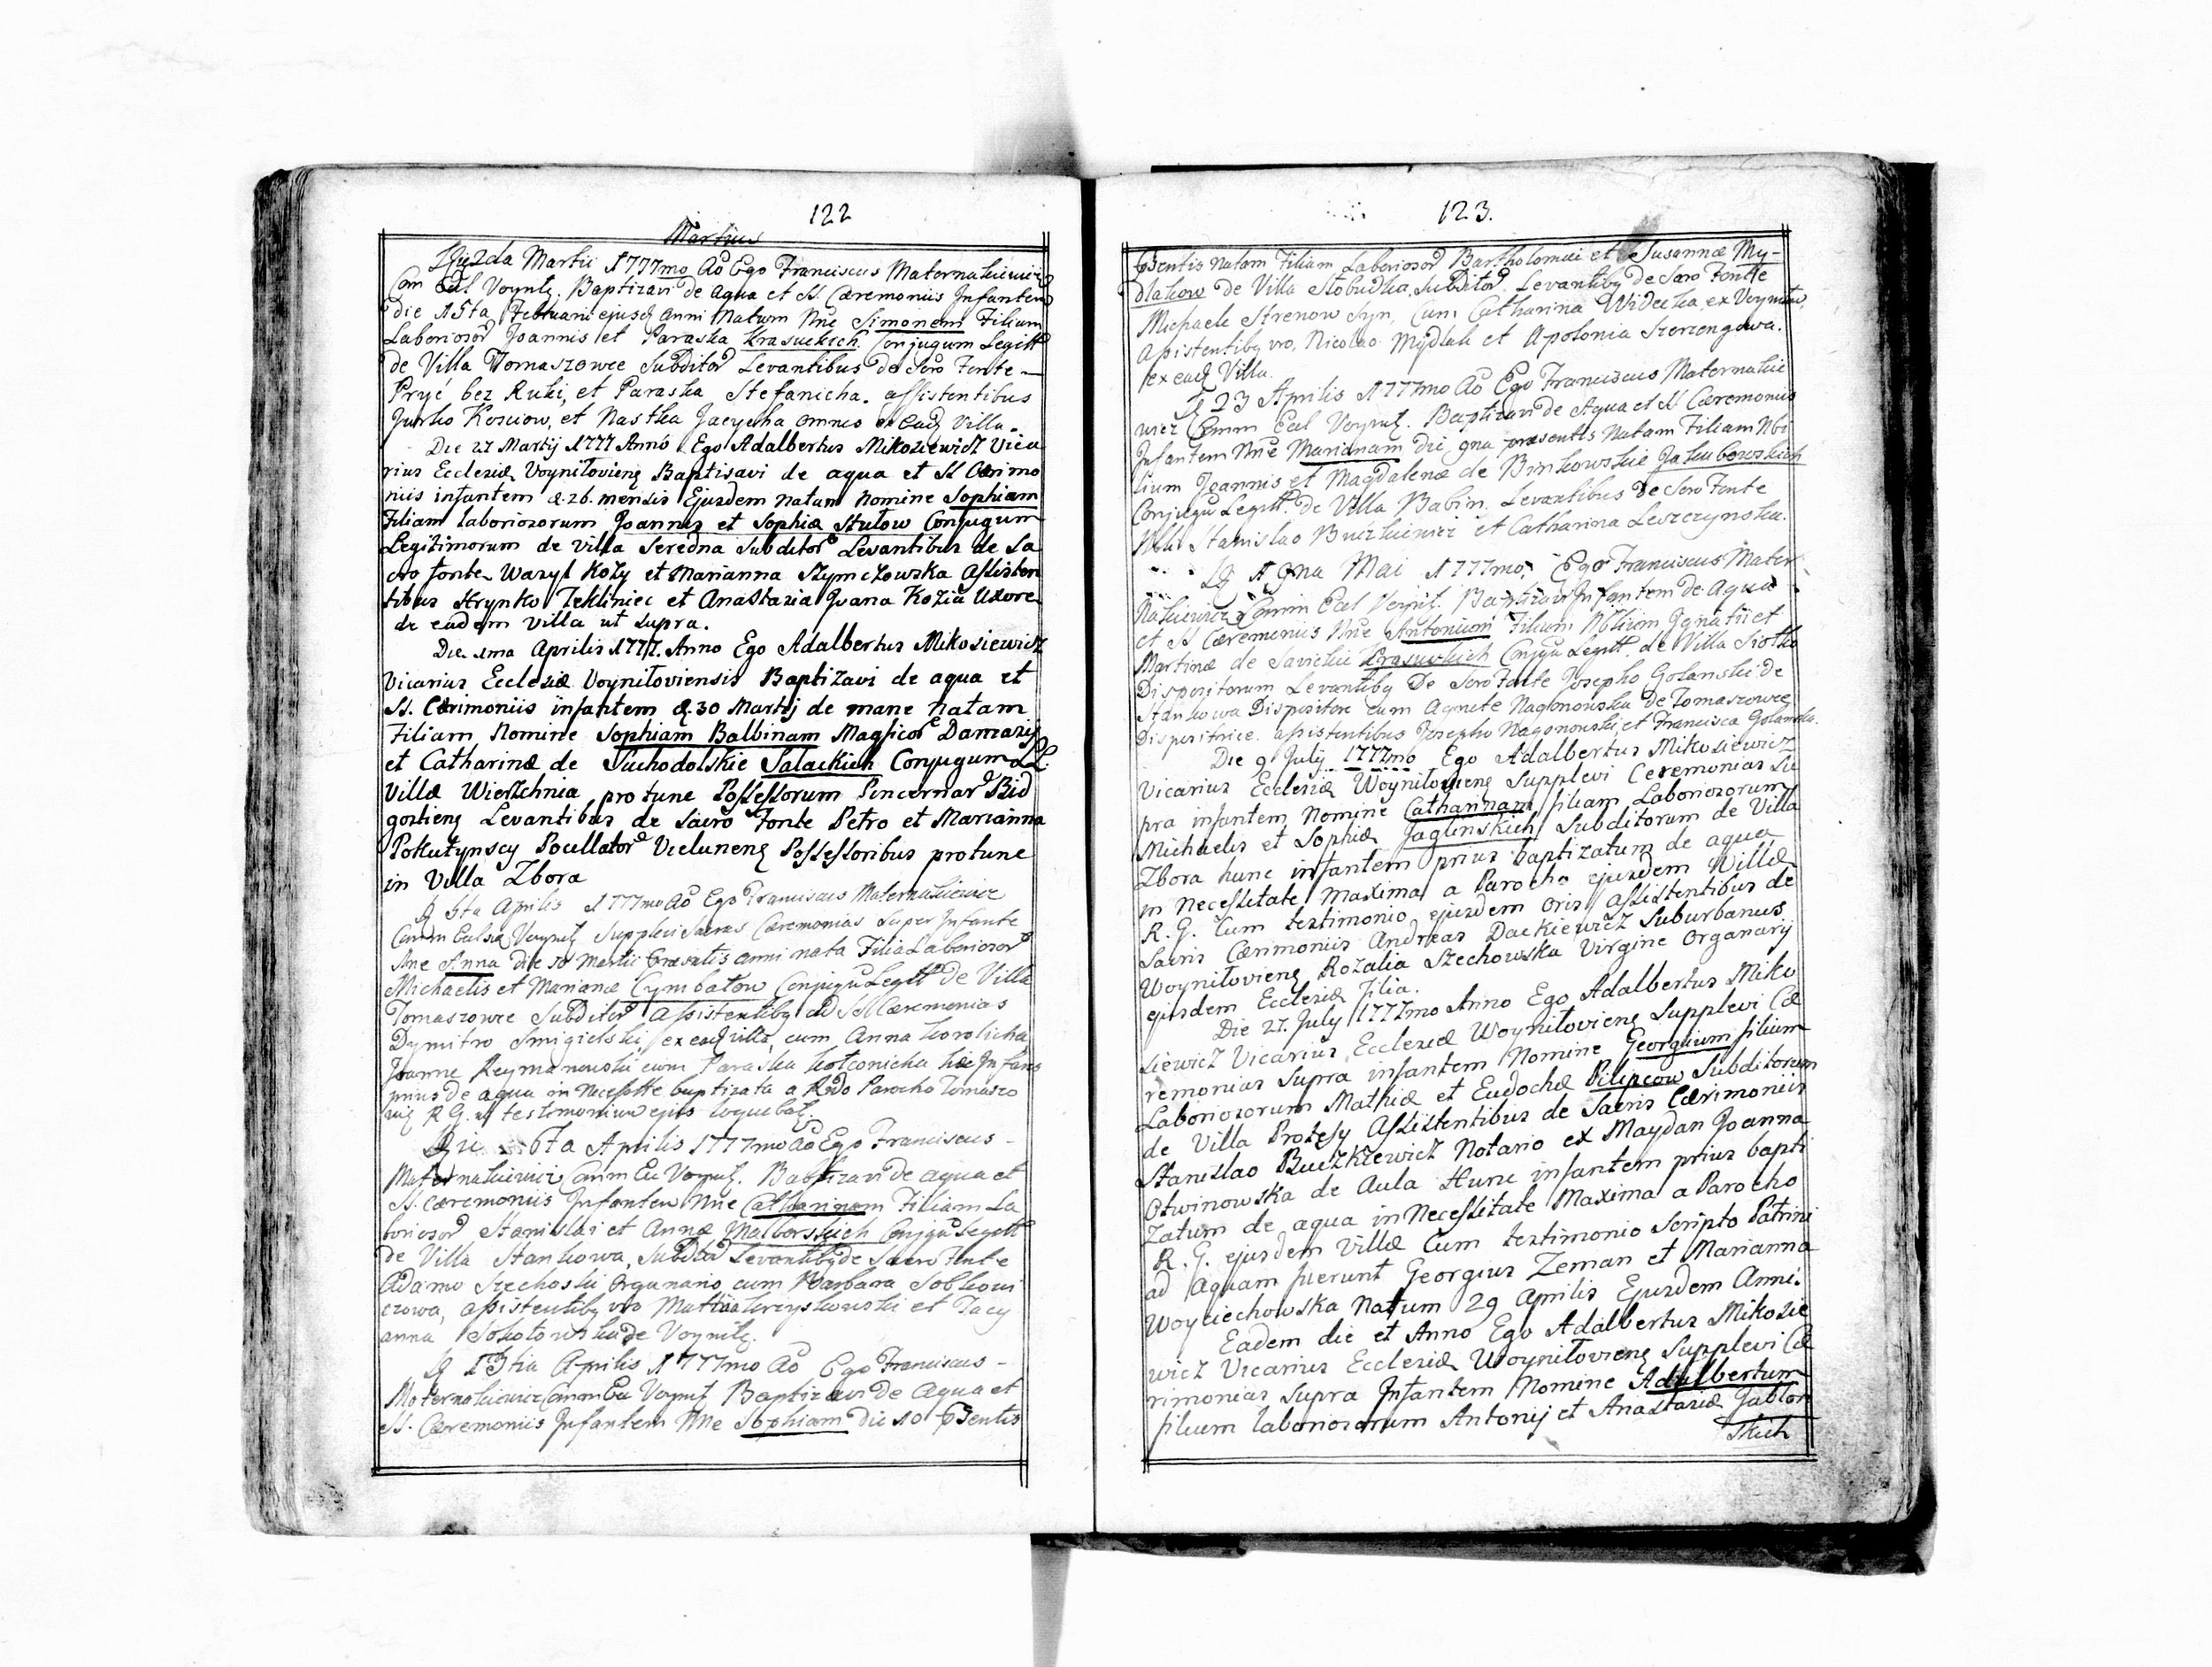 122
Martius
Die 2da Martii 1777mo Ao Ego Franciscus Maternakiewicz
Com Ecl Voynil. Baptizavi de aqua et SS. Cæremoniis Infantem
die 15ta Februarii ejusd anni Natum Nne Simonem Filium
Laboriosor Joannis et Paraska Krasuckich Conjugum Legitt
de Villa Tomaszowce Subditor Levantibus de Scro Fonte
Pryć bez Ruki, et Paraska Stefanicha. assistentibus
Jurko Kosciow, et Nastka Jacycha omnes ex ead Villa.
Die 27 Martij 1777 Anno Ego Adalbertus Mikosiewicz Vica
rius Ecclesiæ Voyniloviens Baptisavi de aqua et SS Cærimo
niis infantem d. 26. mensis Ejusdem natam nomine Sophiam
Filiam laboriosorum Joannis et Sophiæ Stulow Conjugum
Legitimorum de villa Seredna Subditor Levantibus de Sa
cro fonte Wasyl Kozy et Marianna Szymczowska Assisten
tibus Hrynko Tekliniec et Anastazia Jvana Kozia Uxore
de eadem villa ut supra.
Die 1ma Aprilis 1777. Anno Ego Adalbertus Mikosiewicz
Vicarius Ecclesiæ Voyniloviensis Baptizavi de aqua et
SS. Cærimoniis infantem d. 30 Martij de mane natam
Filiam Nomine Sophiam Balbinam Magficor Damazij
et Catharinæ de Suchodolskie Salackich Conjugum LL.
Villæ Wierzchnia protunc Possessorum Pincernar Bid
gostiens Levantibus de Sacro Fonte Petro et Marianna
Pokutynscy Pocillator Vieluneng Possessoribus protunc
in Villa Zbora
D 6ta Aprilis 1777mo Ao Ego Franciscus Maternakiewicz
Comm Eclsiæ Voynil Supplevi Sacras Cæremonias Super Infante
Nne Anna die 10 Martii Præsentis anni nata Filia Laboriosor
Michaelis et Marianæ Cymbalow Conjugu Legitt de Villa
Tomaszowce Subditor assistentibq ad SS Cæremonias
Dymitro Smigielski ex ead villa, cum Anna korolicha,
Joanne Reymanowski cum Paraska kotconicha hæc Infans
prius de aqua in Necessitte baptizata a Rdo Parocho Tomaszo
R G. ut testimonium ejus loquebat.
Die 6ta Aprilis 1777mo Ao Ego Franciscus
Maternakiewicz Comm Ecc Voynil. Babtizavi de aqua et
SS. Cæremoniis Infantem Nne Catharinam Filiam La
boriosor Stanislai et Annæ Malborskich Conjgu Legitt
de Villa Stankowa, Subditor Levantibq de Sacro Fonte
Adamo Szechoski Organario cum Barbara Sobkowi
czowa, assistentibq vro Mattia krzyskowski et Tacy
anna Sokolowska de Voynil.
D 13tia Aprilis 1777mo Ao Ego Franciscus
Maternakiewicz Comm Ecc Voynil Baptizavi de Aqua et
SS. Cæremoniis Infantem Nne Sophiam die 10 Psentis
123.
Psentis Natam Filiam Laboriosor Bartholomæi et Susannæ My-
dlakow de Villa Slobudka Subditor. Levantibq de Scro Fonte
Michaele Strenow Syn, Cum Catharina Widecka ex Voynilow,
Assistentibq vro, Nicolao Mydlak et Apolonia Szerzengowa.
ex ead Villa.
D 23 Aprilis 1777mo Ao Ego Franciscus Maternakie
wicz Comm Ecl Voynil. Baptizavi de Aqua et SS Cæremoniis
Infantem Nne Mariannam die 9na præsentis Natam Filiam Nbi
lium Joannis et Magdalenæ de Binkowskie Jakubowskich
Conjugu Legitt. de Villa Babin. Levantibus de Scro Fonte
Nbli Stanislao Buczkiewicz et Catharina Leszczynska.
D 19na Mai 1777mo, Ego Franciscus Mater
nakiewicz Comm Ecl Voynil. Baptizavi Infantem de Aqua
et SS Cæremoniis Nne Antonium Filium Nblium Ignatii et
Martinæ de Savickie Krasuckich Conjgu Legitt. de Villa Siolko
Dispositorum Levantibq De Scro Fonte Josepho Golanski de
Stankowa Dispositore cum Agnete Nagonowska De Tomaszowce
Dispositrice. assistentibus Josepho Nagonowski, et Francisca Golanska.
Die 9 July 1777mo Ego Adalbertus Mikosiewicz
Vicarius Ecclesiæ Woyniloviens Supplevi Ceremonias Su
pra infantem Nomine Catharinam filiam Laboriosorum
Michaelis et Sophiæ Jaglinskich Subditorum de Villa
Zbora hunc infantem prius baptizatum de aqua
in necessitate maxima a Parocho ejusdem Villæ
R. G. Cum testimonio ejusdem oris assistentibus de
Sacris Cærimoniis Andreas Dackiewicz Suburbanus
Woyniloviens Rozalia Szechowska Virgine Organarij
ejusdem Ecclesiæ Filia.
Die 27. July 1777mo Anno Ego Adalbertus Miko
siewicz Vicarius Ecclesiæ Woyniloviens Supplevi Cæ
remonias Supra infantem Nomine Georgium filium
Laboriosorum Mathiæ et Eudochæ Pilipcow Subditorum
de Villa Protesy Assistentibus de Sacris Cærimoniis
Stanislao Buczkiewicz Notario ex Maydan Joanna
Otwinowska de Aula Hunc infantem prius bapti
zatum de aqua in Necessitate Maxima a Parocho
R. G. ejusdem Villæ Cum testimonio Scripto Patrini
ad Aquam fuerunt Georgius Zeman et Marianna
Woyciechowska Natum 29 Aprilis Ejusdem Anni.
Eadem die et Anno Ego Adalbertus Mikosie
wicz Vicarius Ecclesiæ Woyniloviens Supplevi Cæ
rimonias Supra Infantem Nomine Adalbertum
filium laboriosorum Antonij et Anastaziæ Jablon
skich